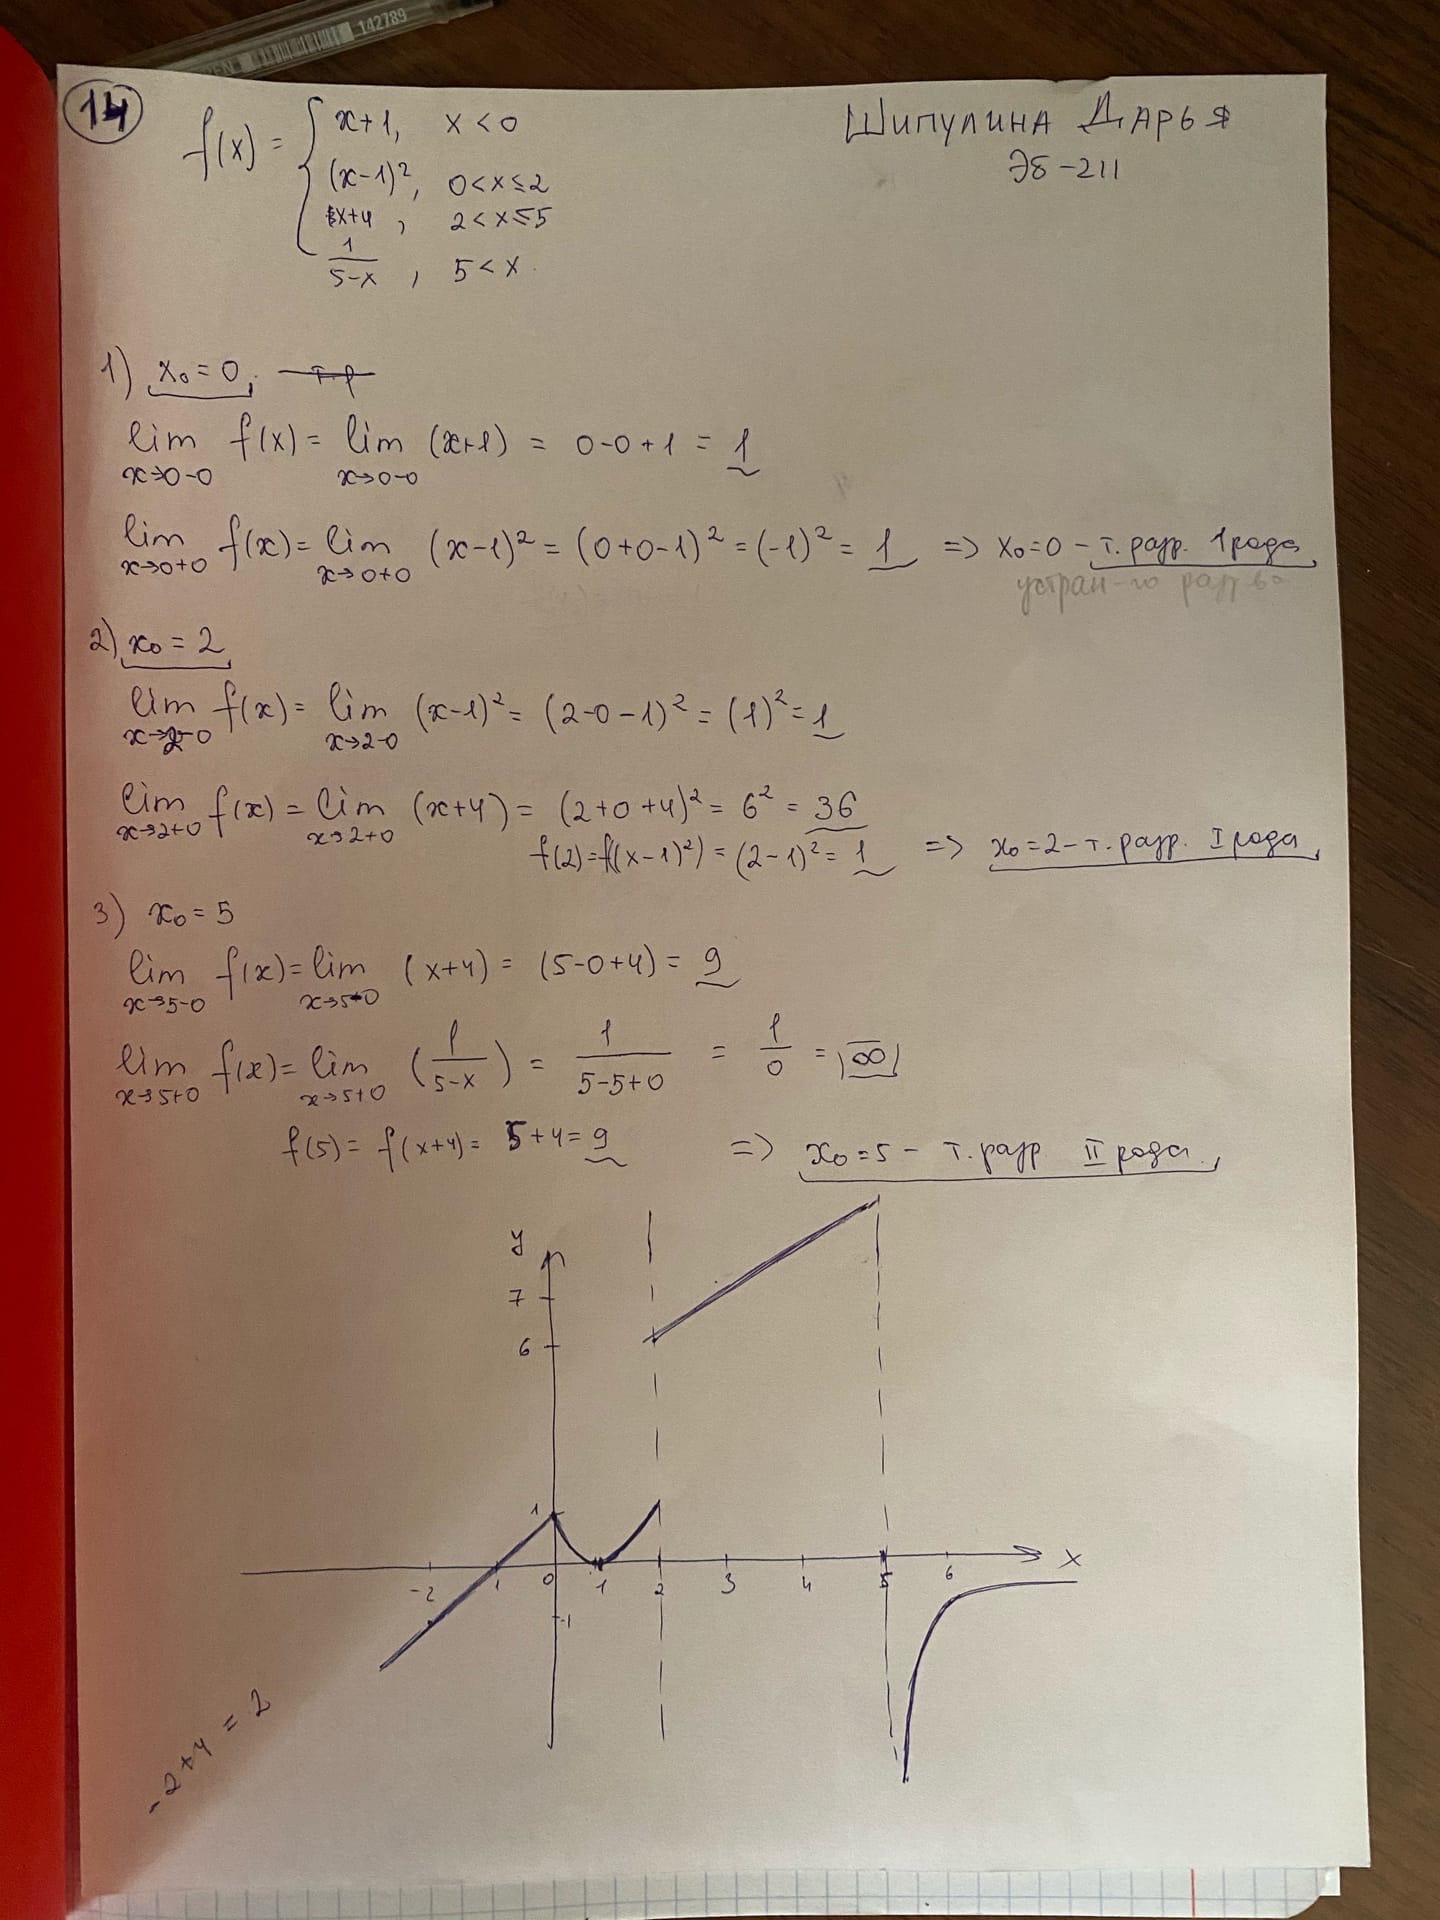 142789
14
ШИПУЛИНА ДАРЬЯ
ЭБ-211
f(x) = { x+1, x < 0
(x-1)², 0 < x ≤ 2
x+4, 2 < x ≤ 5
1/(5-x), 5 < x.
1) x₀ = 0, т.р
lim x→0-0 f(x) = lim x→0-0 (x+1) = 0-0+1 = 1
lim x→0+0 f(x) = lim x→0+0 (x-1)² = (0+0-1)² = (-1)² = 1 => x₀=0 - т. разр. 1 рода,
устран-го разр ва
2) x₀ = 2
lim x→2-0 f(x) = lim x→2-0 (x-1)² = (2-0-1)² = (1)² = 1
lim x→2+0 f(x) = lim x→2+0 (x+4) = (2+0+4)² = 6² = 36
f(2) = f((x-1)²) = (2-1)² = 1 => x₀=2 - т. разр. I рода,
3) x₀ = 5
lim x→5-0 f(x) = lim x→5-0 (x+4) = (5-0+4) = 9
lim x→5+0 f(x) = lim x→5+0 (1/(5-x)) = 1/(5-5+0) = 1/0 = ∞
f(5) = f(x+4) = 5+4 = 9 => x₀=5 - т. разр II рода,
y
7
6
1
-2 -1 0 1 2 3 4 5 6 x
-1
-2+4 = 2